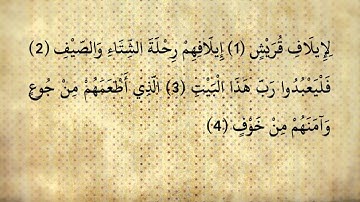 لِإِيلَافِ قُرَيْشٍ (1) إِيلَافِهِمْ رِحْلَةَ الشِّتَاءِ وَالصَّيْفِ (2)
فَلْيَعْبُدُوا رَبَّ هَذَا الْبَيْتِ (3) الَّذِي أَطْعَمَهُمْ مِنْ جُوعٍ
وَآمَنَهُمْ مِنْ خَوْفٍ (4)